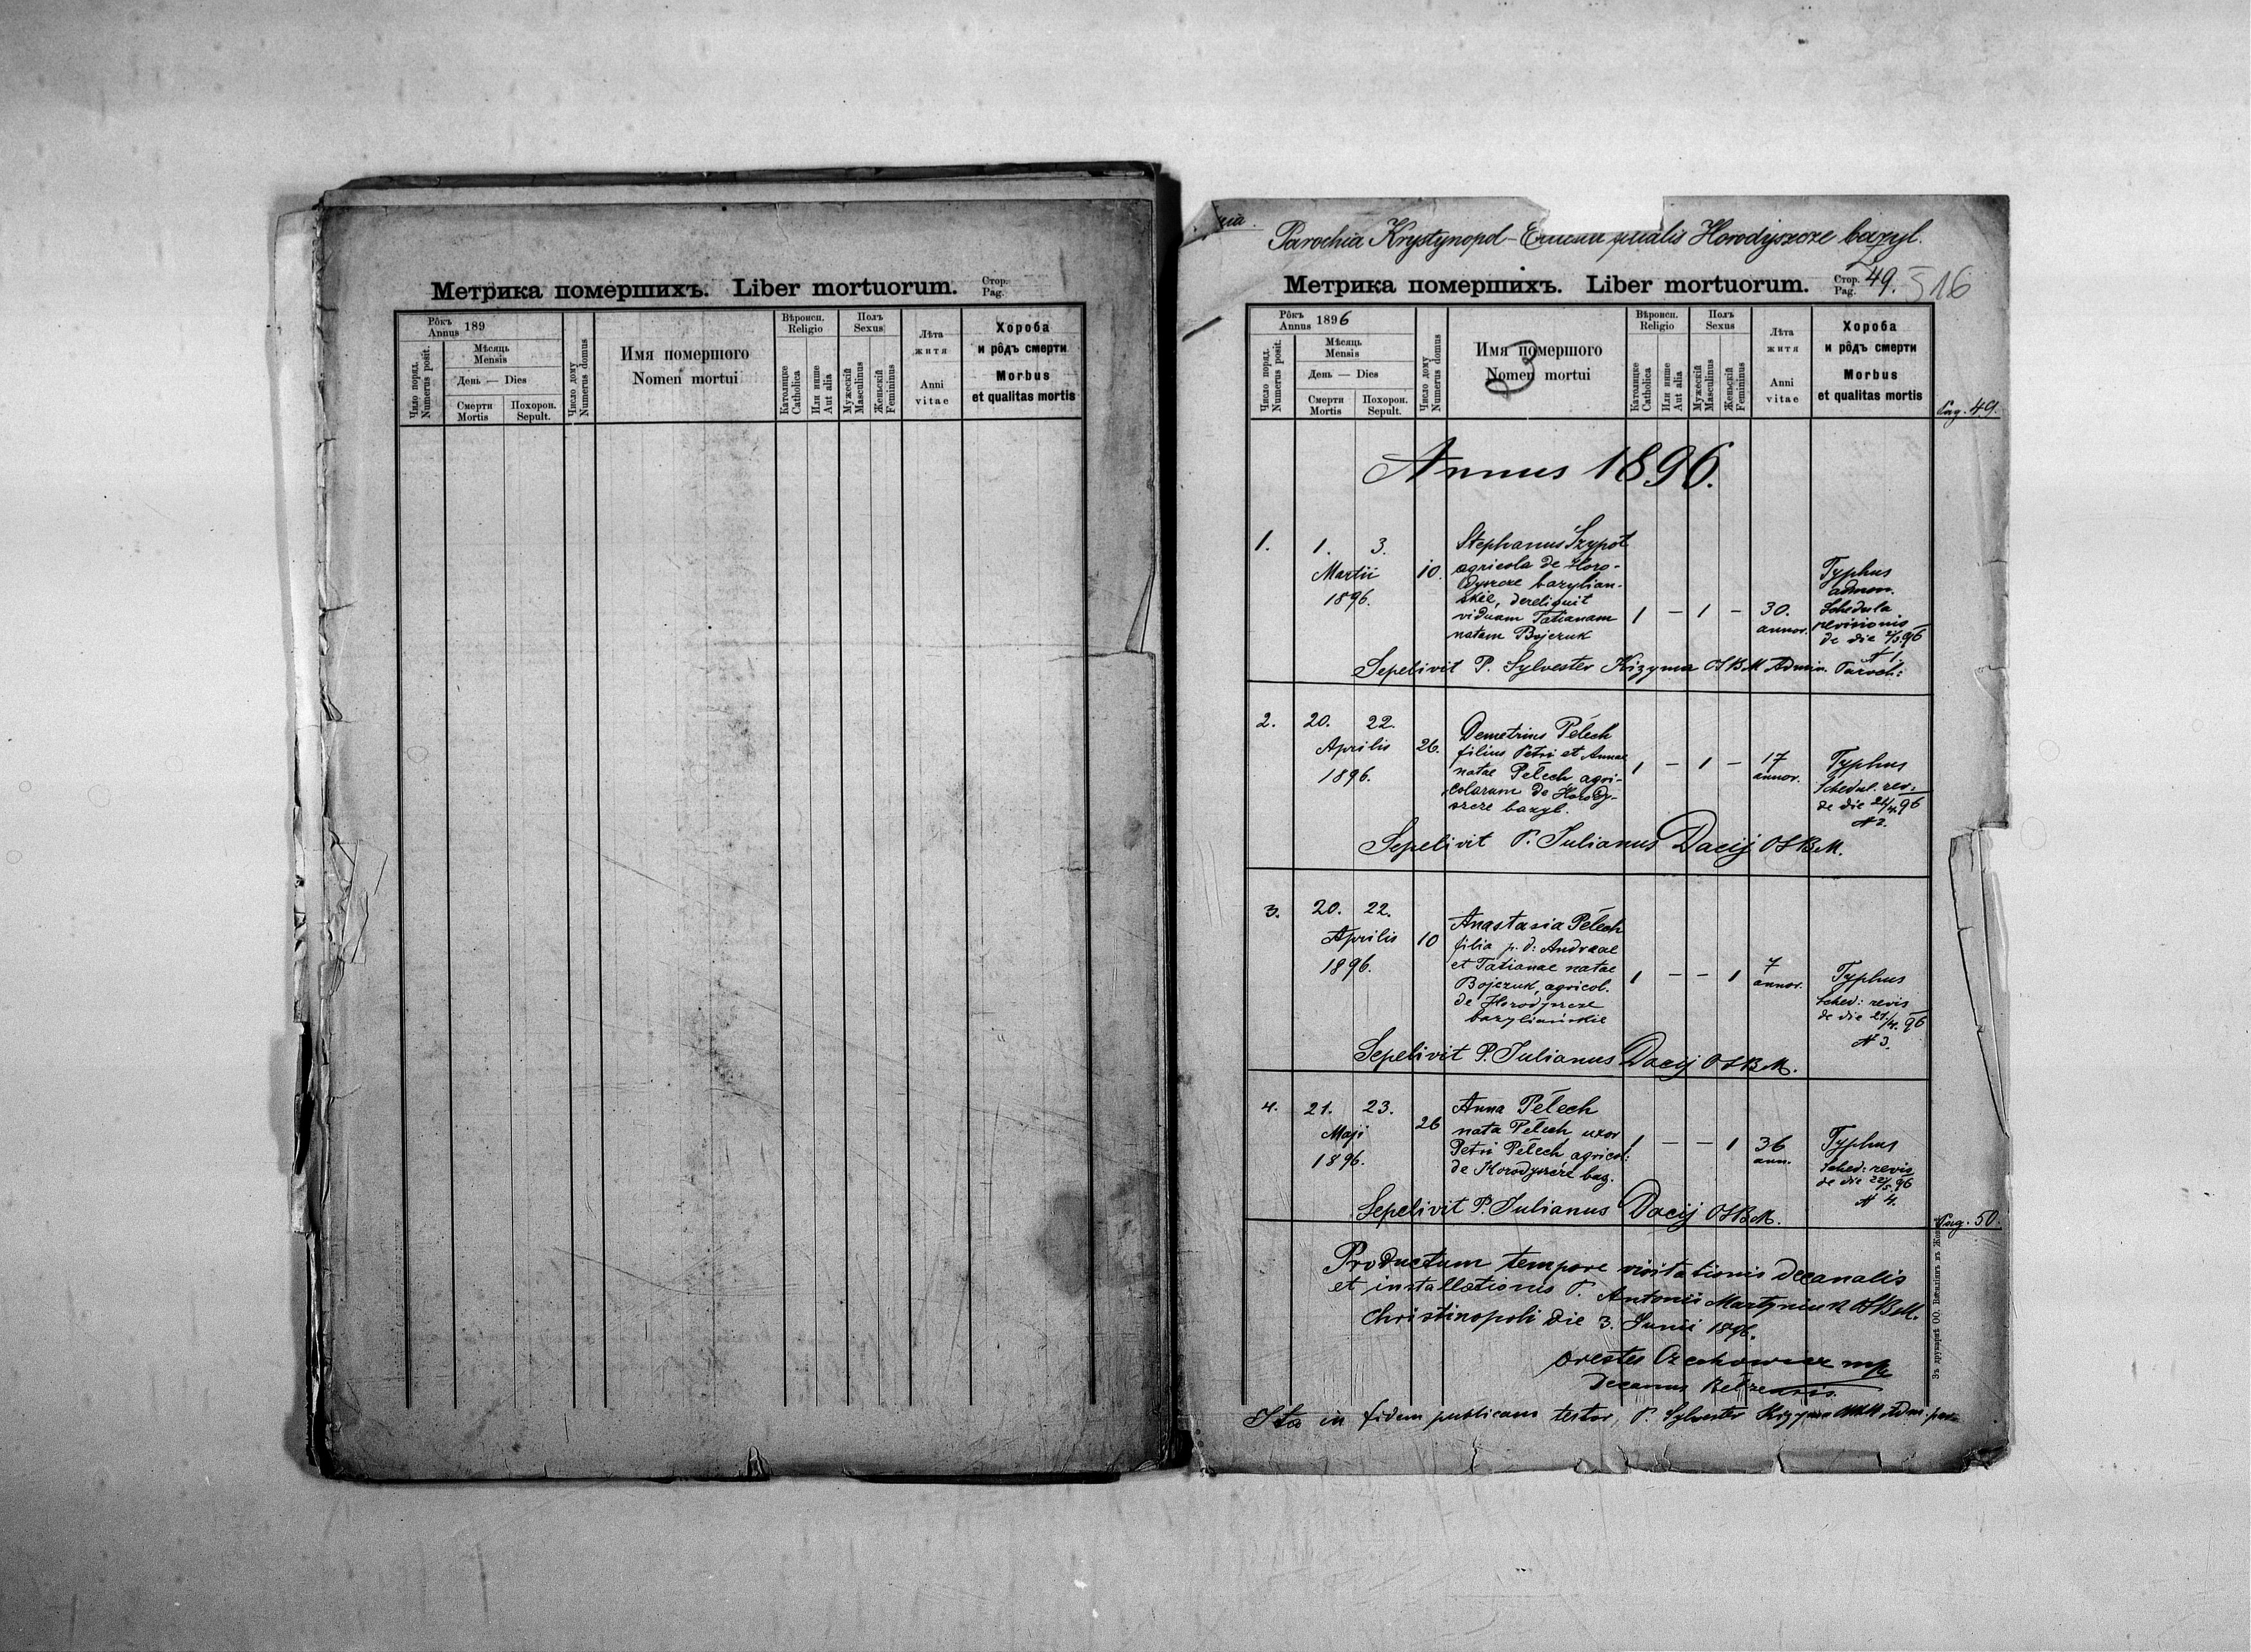 Метрика помершихъ. Liber mortuorum. Стор. Pag.
Рôкъ Annus 189
Число поряд. Numerus posit.
Мѣсяць Mensis
День — Dies
Смерти Mortis
Похорон. Sepult.
Число дому Numerus domus
Имя помершого Nomen mortui
Вѣроисп. Religio
Католицке Catholica
Или инше Aut alia
Полъ Sexus
Мужескій Masculinus
Женьскій Femininus
Лѣта житя Anni vitae
Хороба и рôдъ смерти Morbus et qualitas mortis
Parochia Krystynopol - Horodyszcze bazyl.
Метрика помершихъ. Liber mortuorum. Стор. Pag. 49. 516
Рôкъ Annus 1896
Число поряд. Numerus posit.
Мѣсяць Mensis
День — Dies
Смерти Mortis
Похорон. Sepult.
Число дому Numerus domus
Имя помершого Nomen mortui
3
Вѣроисп. Religio
Католицке Catholica
Или инше Aut alia
Полъ Sexus
Мужескій Masculinus
Женьскій Femininus
Лѣта житя Anni vitae
Хороба и рôдъ смерти Morbus et qualitas mortis
Pag. 49.
Annus 1896.
1. 1. 3. Stephanus Szypot
Martii 10. agricola de Horo-
dyszcze bazylian-
1896. skie, dereliquit
viduam Tatianam 1 — 1 — 30.
natam Bojczuk annor.
Typhus
Schedula
revisionis
de die 2/3.96
N 1.
Sepelivit P. Sylvester Kizyma OSBM Admin. Paroch:
2. 20. 22. Demetrius Pełech
Aprilis 26. filius Petri et Annae
1896. natae Pełech agri- 1 — 1 — 17 annor.
colarum de Horody-
szcze bazyl.
Typhus
Schedul. rev.
de die 21/4.96
N 2.
Sepelivit P. Julianus Dacij OSBM.
3. 20. 22. Anastasia Pełech
Aprilis 10 filia p. d: Andreae
1896. et Tatianae natae
Bojczuk, agricol. 1 — — 1 7 annor.
de Horodyszcze
bazyliańskie
Typhus
Sched: revis
de die 21/4.96
N 3.
Sepelivit P. Julianus Dacij OSBM.
4. 21. 23. Anna Pełech
Maji 26 nata Pełech uxor
1896. Petri Pełech agricol: 1 — — 1 36 ann.
de Horodyszcze baz.
Typhus
Sched: revis
de die 22/5.96
N 4.
Sepelivit P. Julianus Dacij OSBM.
Pag. 50.
Productum tempore visitationis decanalis
et installationis P. Antonii Martyniuk OSBM.
Christinopoli die 3. Junii 1896.
Orestes Czechowicz mp
Decanus Belzensis.
Ita in fidem publicam testor, P. Sylvester Kizyma OSBM Adm.